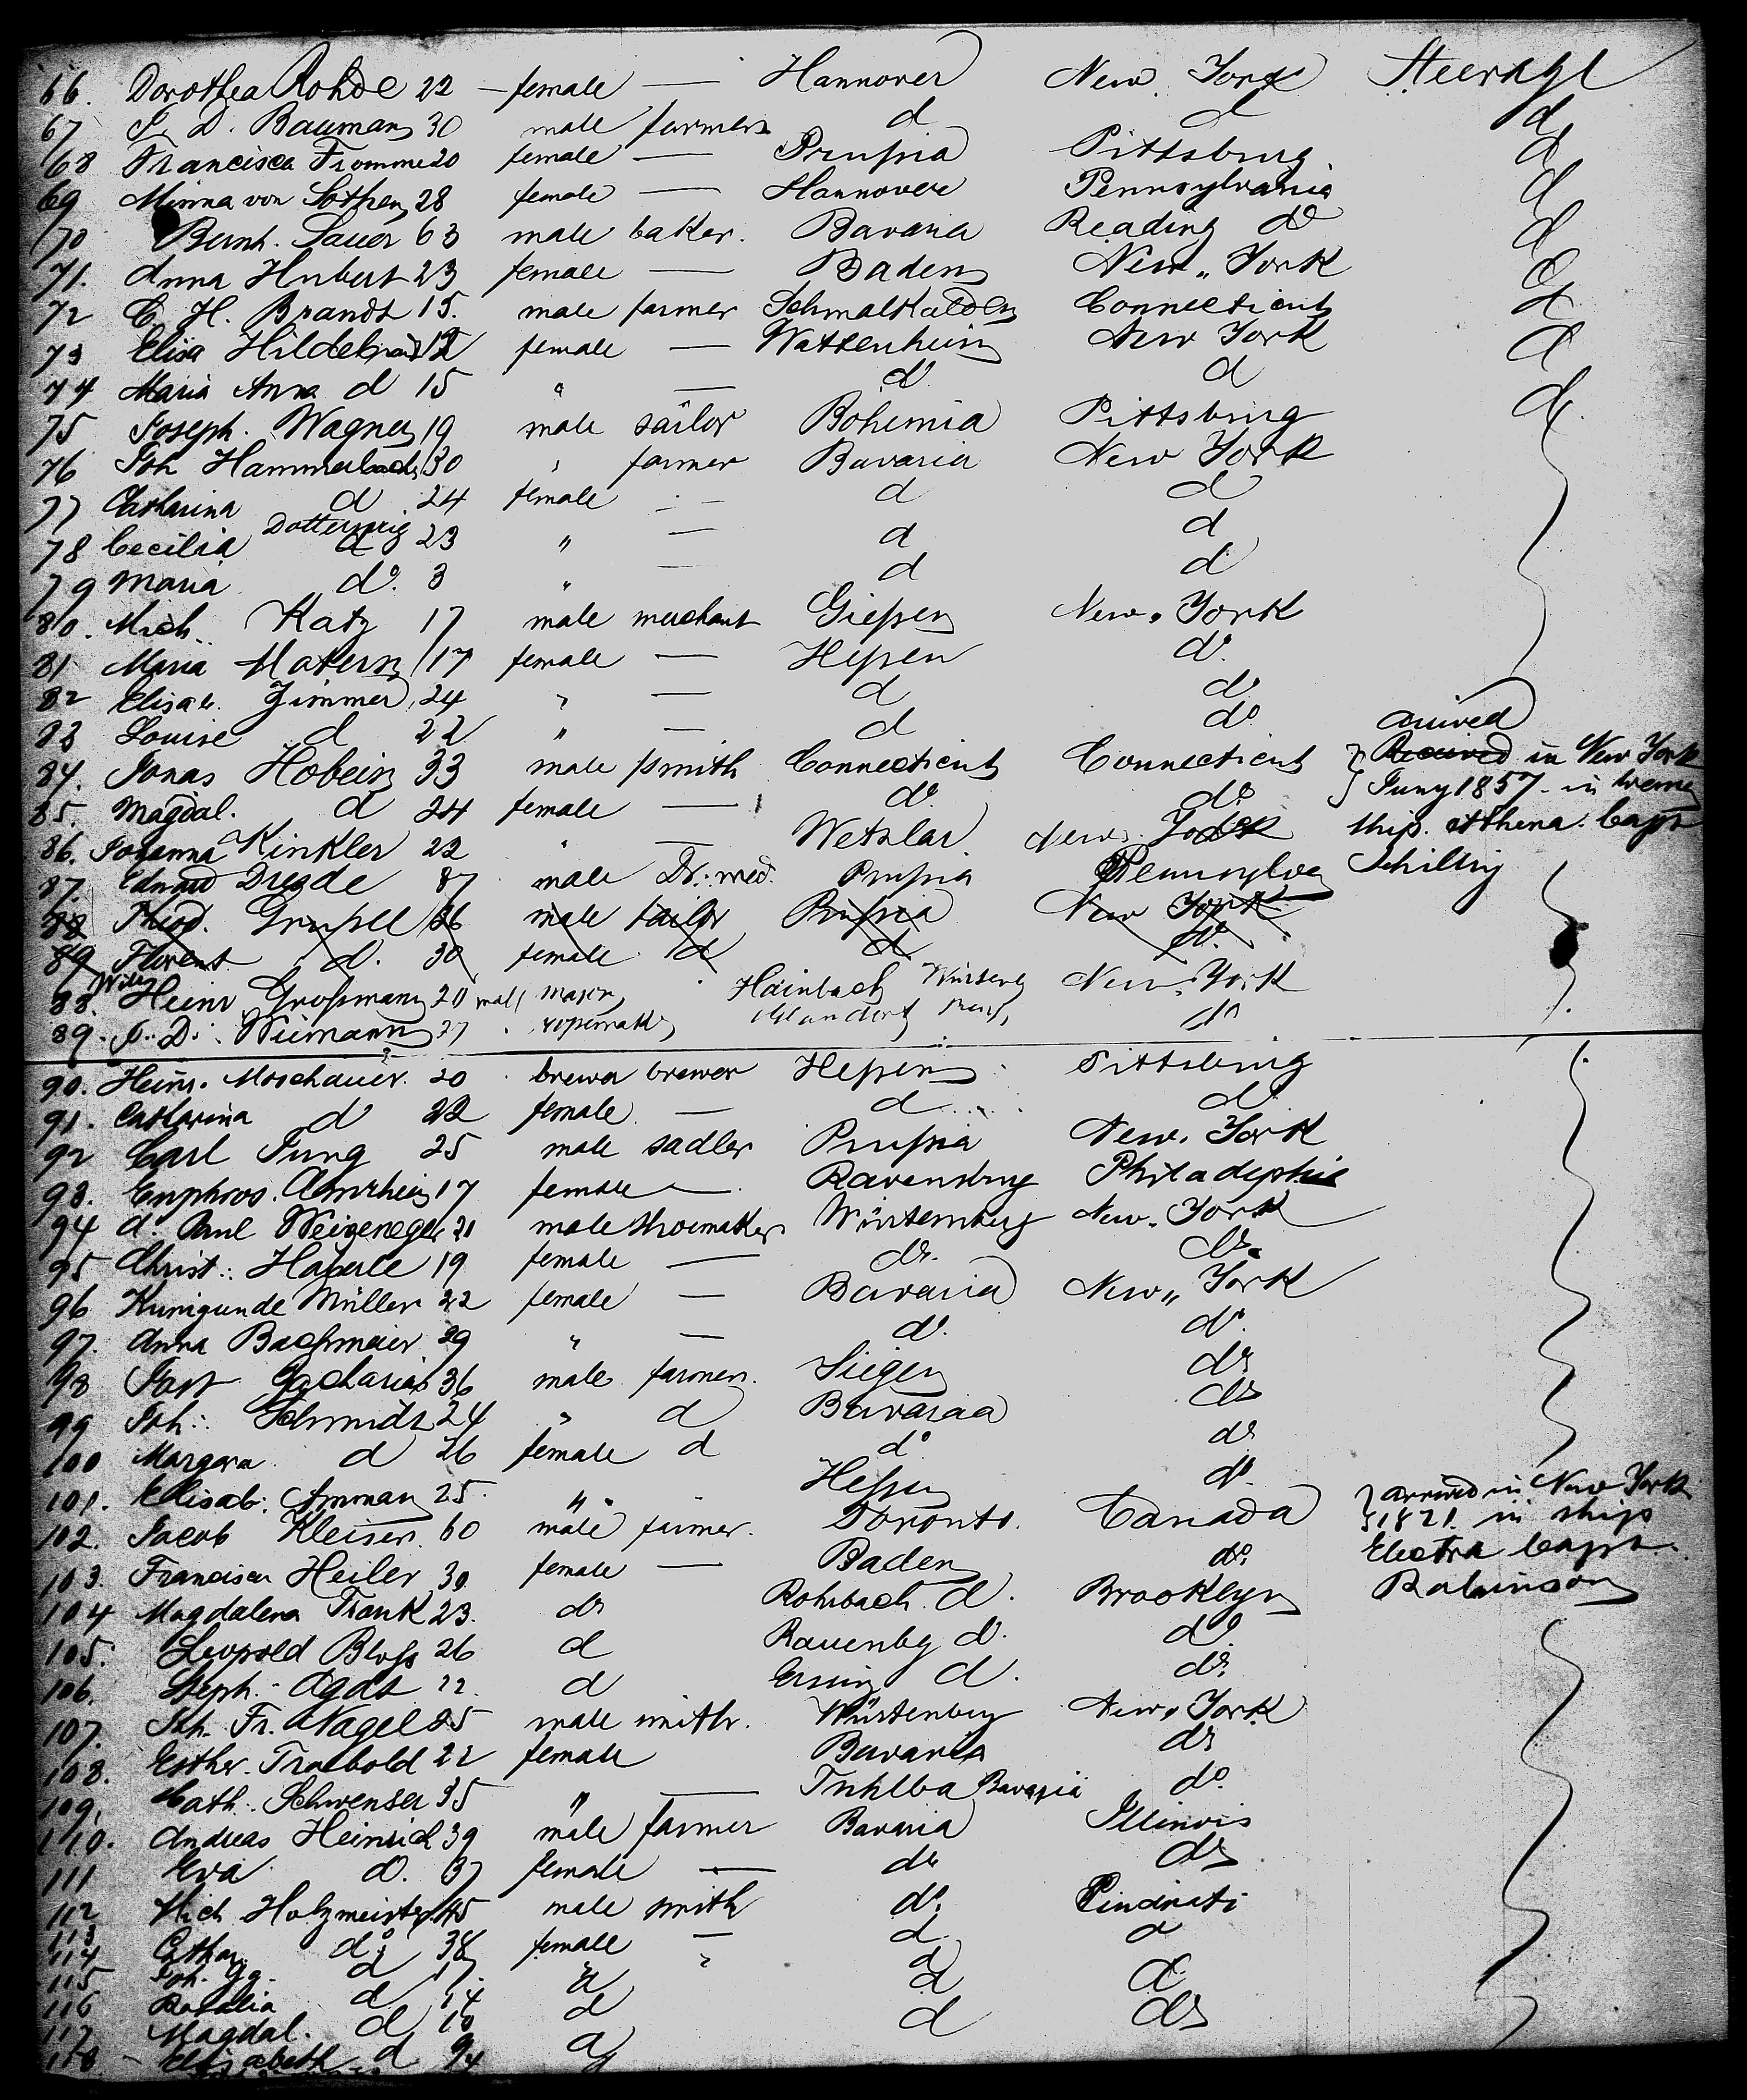 66. Dorothea Rohde 22 — female — Hannover New York Steerage
67 D. Bauman 30 male farmer d d d
68 Francisca Fromme 20 female — Prussia Pittsburg d
69 Minna von Sothen 28 female — Hannover Pennsylvania d
70 Bernh. Sauer 63 male baker. Bavaria Reading do d
71. Anna Hubert 23 female — Baden New York d
72 C. H. Brandt 15. male farmer Schmalkalden Connecticut d
73 Elisa Hildebrand 12 female — Wattenheim New York d
74 Maria Anna d 15 " — do d d
75 Joseph. Wagner 19 male sailor Bohemia Pittsburg
76 Joh Hammerbach 30 " farmer Bavaria New York
77 Catharina d 24 female — d d
78 Cecilia d 23 " — d d
79 Maria do. 3 " — d d
80. Mich. Katz 17 male merchant Giessen New York
81 Maria Matern 17 female — Hessen do.
82 Elisab. Zimmer 24 " — d do
83 Louise d 22 " — d do arrived
84. Jonas Hobein 33 male smith Connecticut Connecticut } Received in New York
85. Magdal. d 24 female — do do } Juny 1857 - in
86. Johanna Kinkler 22 " — Wetzlar New York ship. Athena. Capt
87. Eduard Dresde 37 male Dr. med. Prussia Pennsylva Schilling
88 Theod. 26 male tailor Prussia New York
89 Florent d. 30 female d d do.
88. Heinr Grossmann 20 male mason Hainbach New York
89. D. Wiemann 27 ropemaker do
90. Heinr. Moschauer. 20 brewer brewer Hessen Pittsburg
91. Catharina d 22 female — d d
92 Carl Jung 25 male sadler Prussia New York
93. Euphros. Amrhein 17 female — Ravensburg Philadephia
94 d. Paul Weizeneger 21 male Shoemaker Würtemberg New York
95 Christ: Häberle 19 female — do. do.
96 Kunigunde Müller 22 female — Bavaria New York
97. Anna Bachmeier 29 " — do. do.
98 Jost Zacharias 36 male farmer. Siegen do
99 Joh: Schmidt 24 " d Bavaraa do
100 Margara d 26 female d do do
101. Elisab: Amman 25. " " Hessen do } arrived in New York
102. Jacob Kleiser. 60 male farmer. Toronto. Canada } 1821. in ship
103. Francisca Heiler 30 female — Baden do. Electra Capt.
104 Magdalena Frank 23. do Rohrbach d. Brooklyn Robinson
105. Leopold Bloss 26 d Rauenbg d. do
106. Steph. Agat 22. d d. do.
107. Joh. Fr. Nagel 25 male smith. Würtenberg New York
108. Esther. Traebold 22 female Bavaria do
109. Cath. Schwenser 35 " — Bavaria do.
110. Andreas Heinrich 39 male farmer Bavaria Illinois
111 Eva d. 37 female — do do
112 Mich Holzmeister 45 male smith do. Cincinati
113 Cathar do. 38 female — d d
114 Joh. Gg. d 17. " d
115 Rosalia d 14 d d d
116 Magdal. d 10 d d do
118 - Elisabeth d